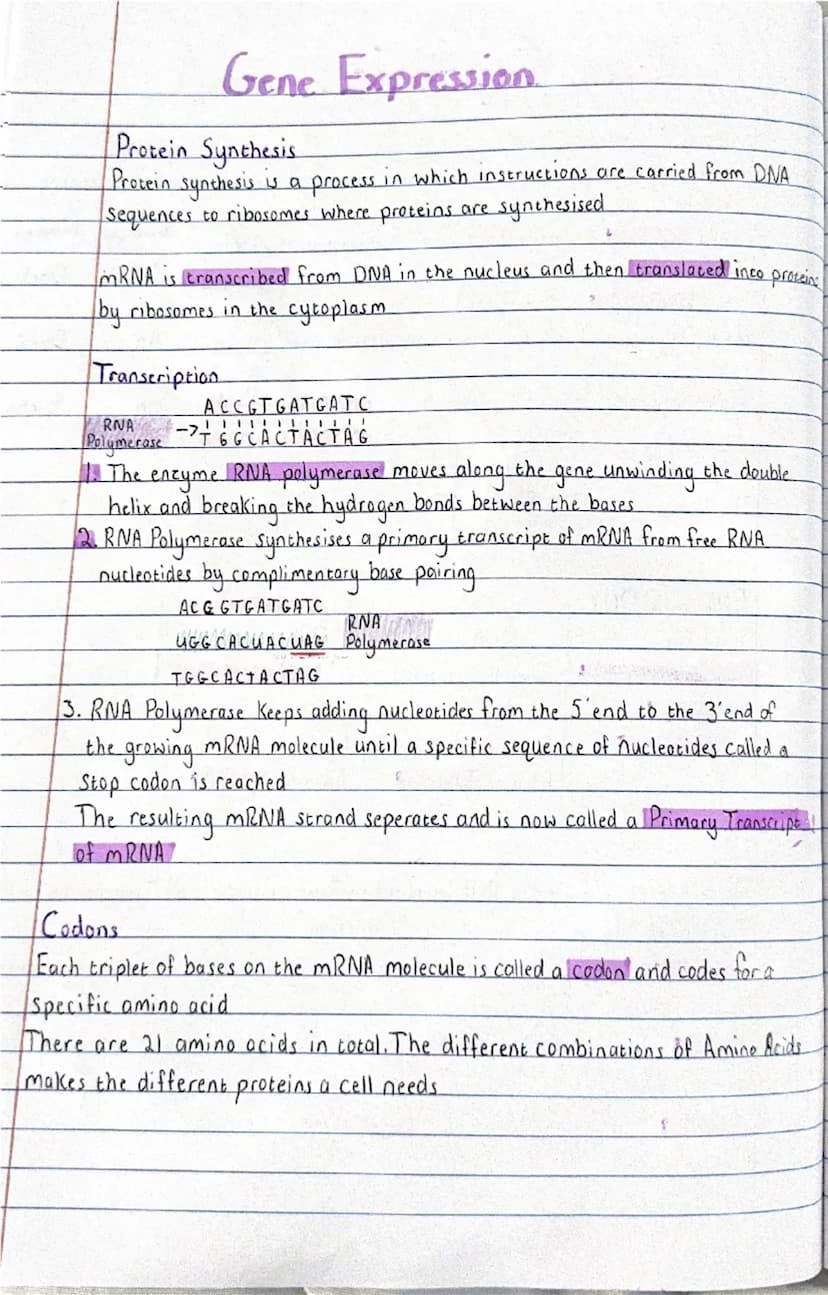 Gene Expression
Protein Synthesis
Protein synthesis is a process in which instructions are carried from DNA
sequences to ribosomes where proteins are synthesised
mRNA is transcribed from DNA in the nucleus and then translated into protein
by ribosomes in the cytoplasm
Transcription
ACCGTGATGATC
RNA
Polymerase -> TGGCACTACTAG
1. The enzyme RNA polymerase moves along the gene unwinding the double
helix and breaking the hydrogen bonds between the bases
2. RNA Polymerase synthesises a primary transcript of mRNA from free RNA
nucleotides by complimentary base pairing
ACGGTGATGATC
RNA
UGGCACUACUAG Polymerase
TGGCACTACTAG
3. RNA Polymerase keeps adding nucleotides from the 5' end to the 3' end of
the growing mRNA molecule until a specific sequence of nucleotides called a
stop codon is reached
The resulting mRNA strand seperates and is now called a Primary Transcript
of mRNA
Codons
Each triplet of bases on the mRNA molecule is called a codon and codes for a
specific amino acid
There are 21 amino acids in total. The different combinations of Amino Acids
makes the different proteins a cell needs